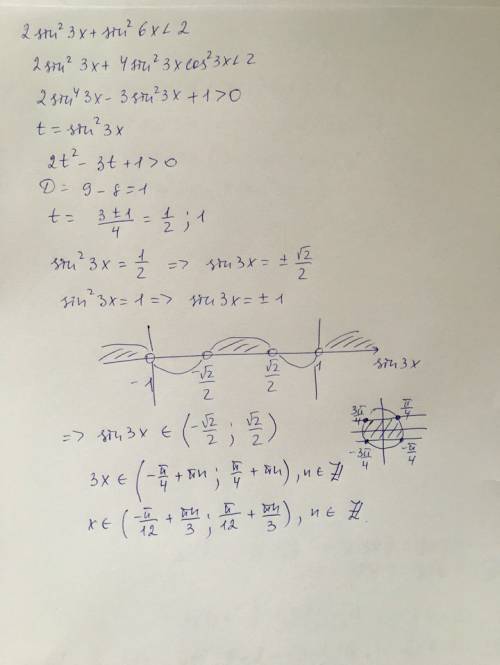 2 sin² 3x + sin² 6x < 2
2 sin² 3x + 4 sin² 3x cos² 3x < 2
2 sin⁴ 3x - 3 sin² 3x + 1 > 0
t = sin² 3x
2t² - 3t + 1 > 0
D = 9 - 8 = 1
t = (3 ± 1)/4 = 1/2 ; 1
sin² 3x = 1/2 => sin 3x = ± √2/2
sin² 3x = 1 => sin 3x = ± 1
-1 -√2/2 √2/2 1 sin 3x
=> sin 3x ∈ (-√2/2 ; √2/2)
3π/4 π/4
-3π/4 -π/4
3x ∈ (-π/4 + πn ; π/4 + πn), n ∈ ℤ
x ∈ (-π/12 + πn/3 ; π/12 + πn/3), n ∈ ℤ.